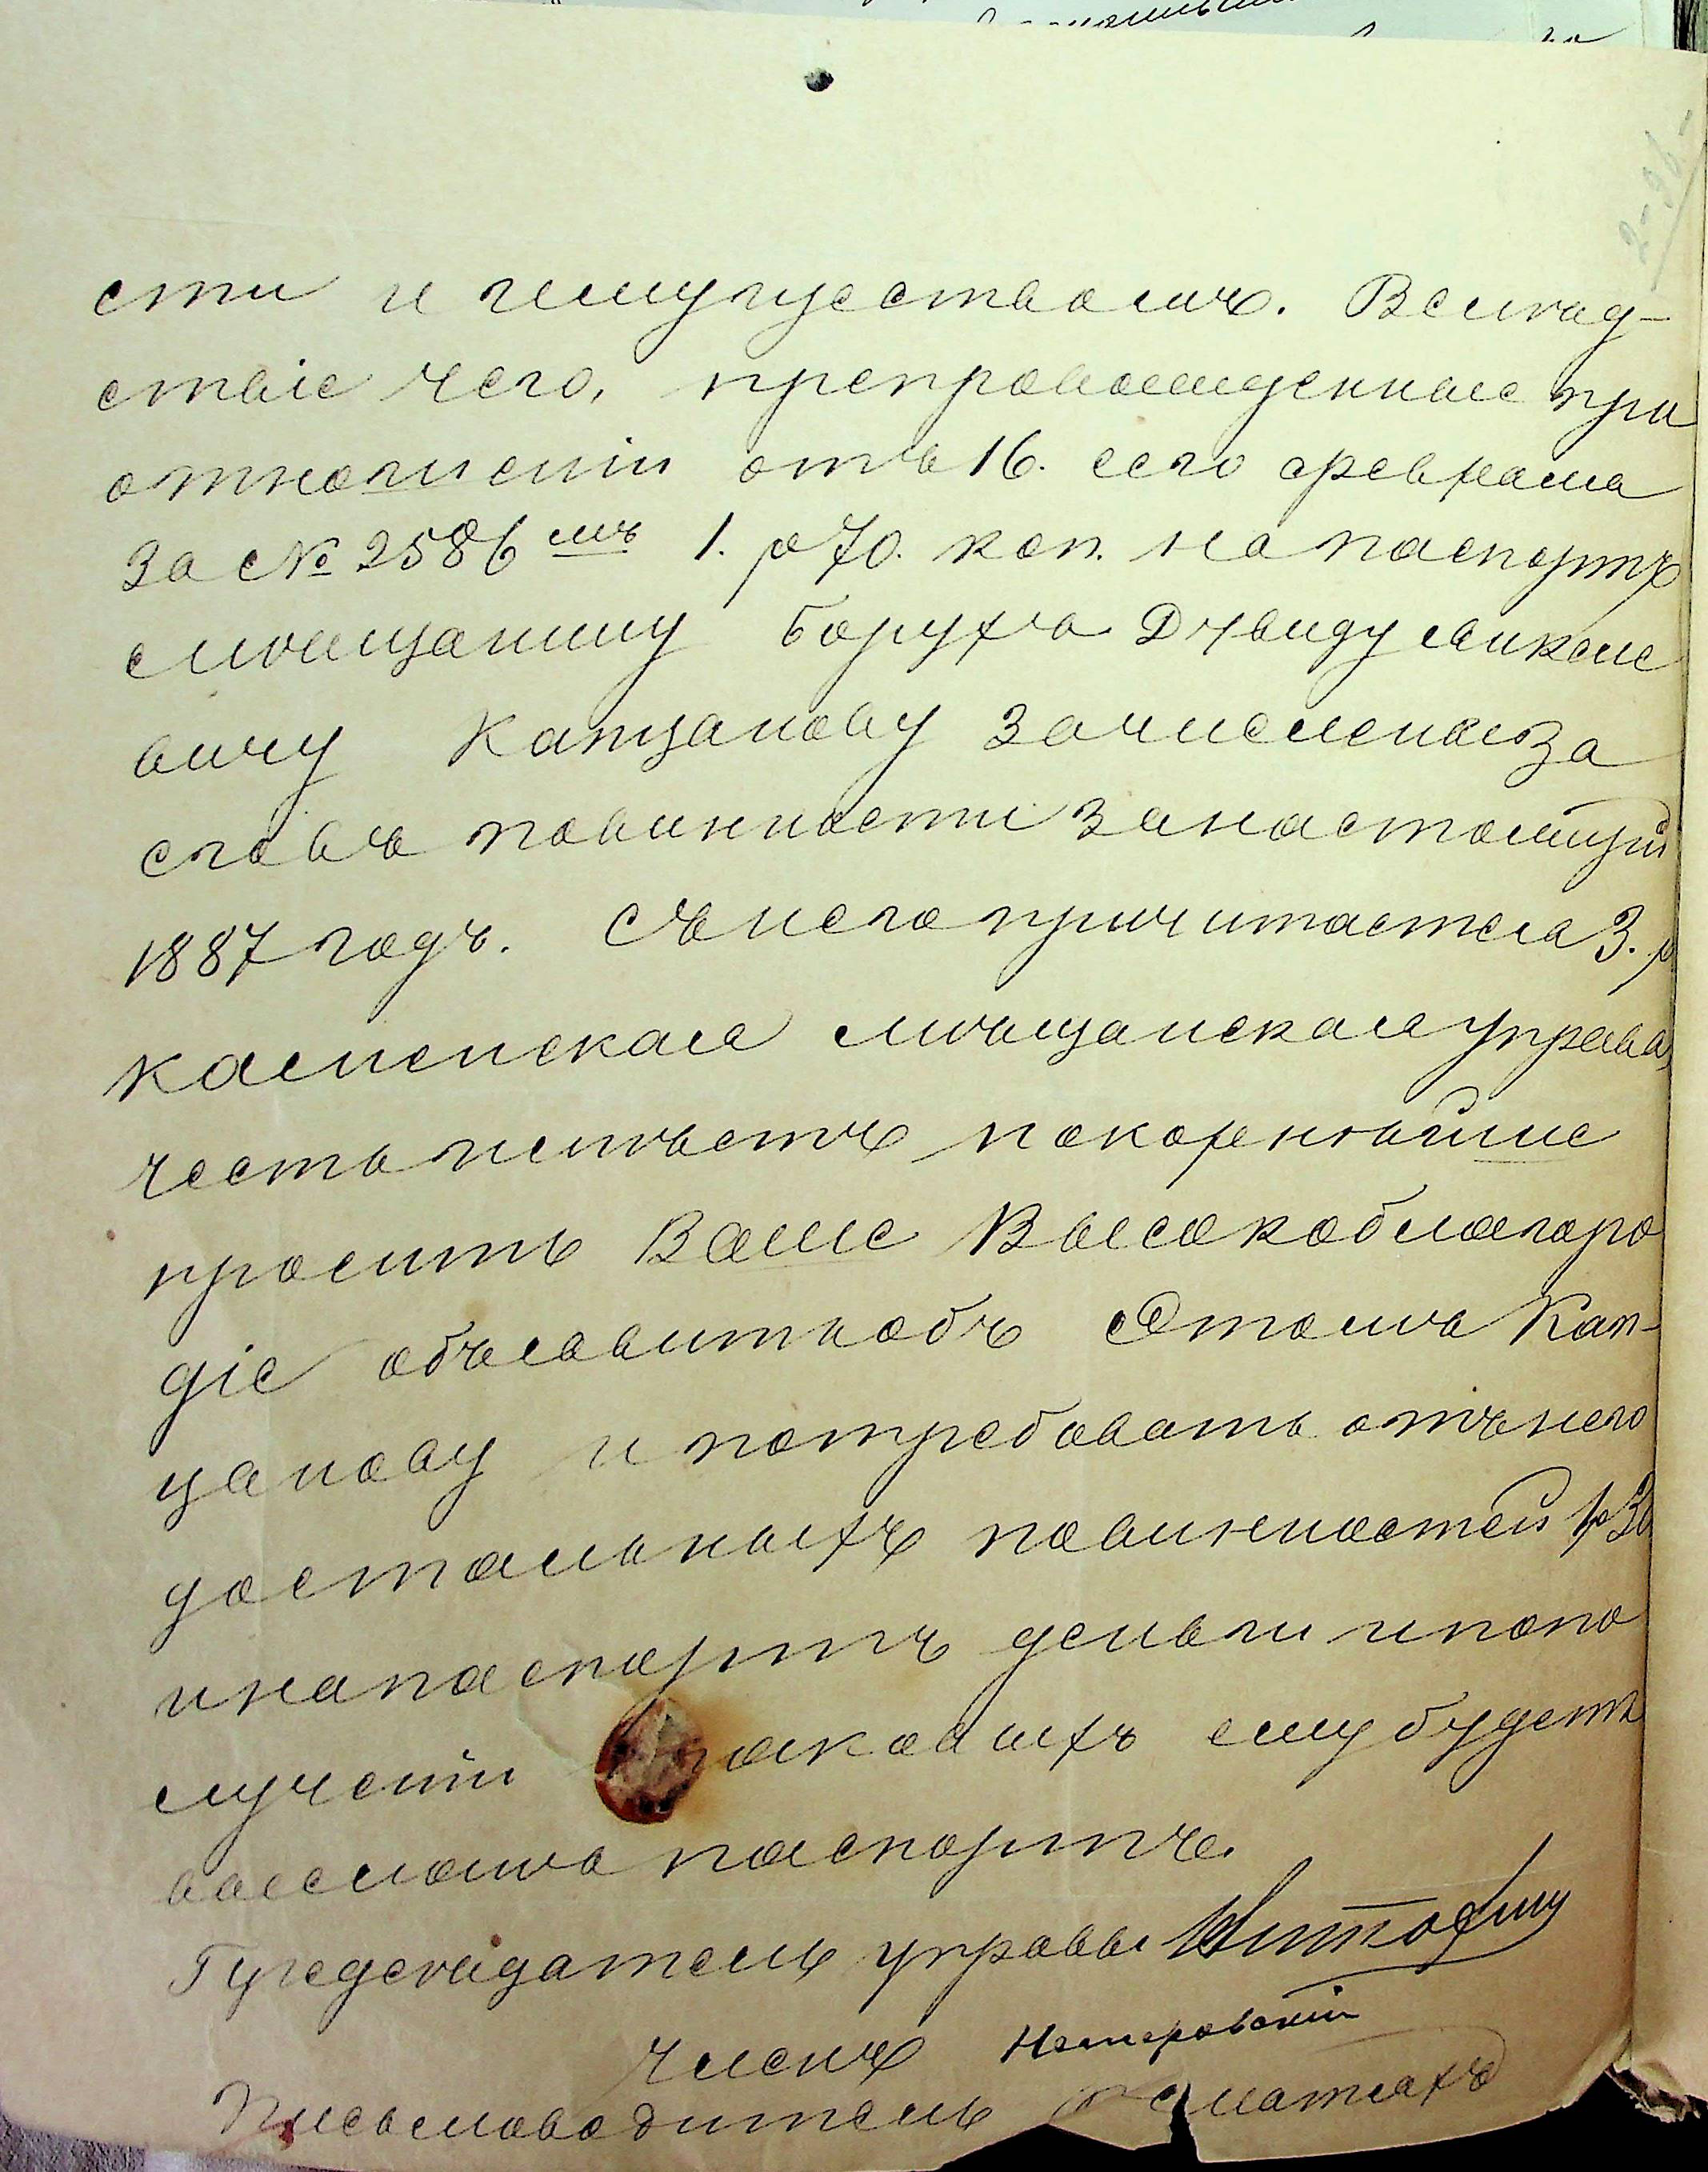 сти и имуществомъ. Вслѣд-
ствіе чего, препровожденные при
отношеніи отъ 16. сего февраля
за № 2586 мъ 1. р 70. коп. на паспортъ
мѣщанину Борухъ Дувиду
вичу Капцанову зачислены за
счетъ повинности за настоящій
1887 годъ. Съ него причитается 3. р
Каменская мѣщанская управа,
честь имѣетъ покорнѣйше
просить Ваше Высокоблагоро
діе объявить объ этомъ Кап-
цанову и потребовать отъ него
достальныхъ повинностей 1 р 30
и на паспортъ деньги и по по
лученіи таковыхъ ему будетъ
высланъ паспортъ.
Предсѣдатель управы
Членъ
Письмоводитель